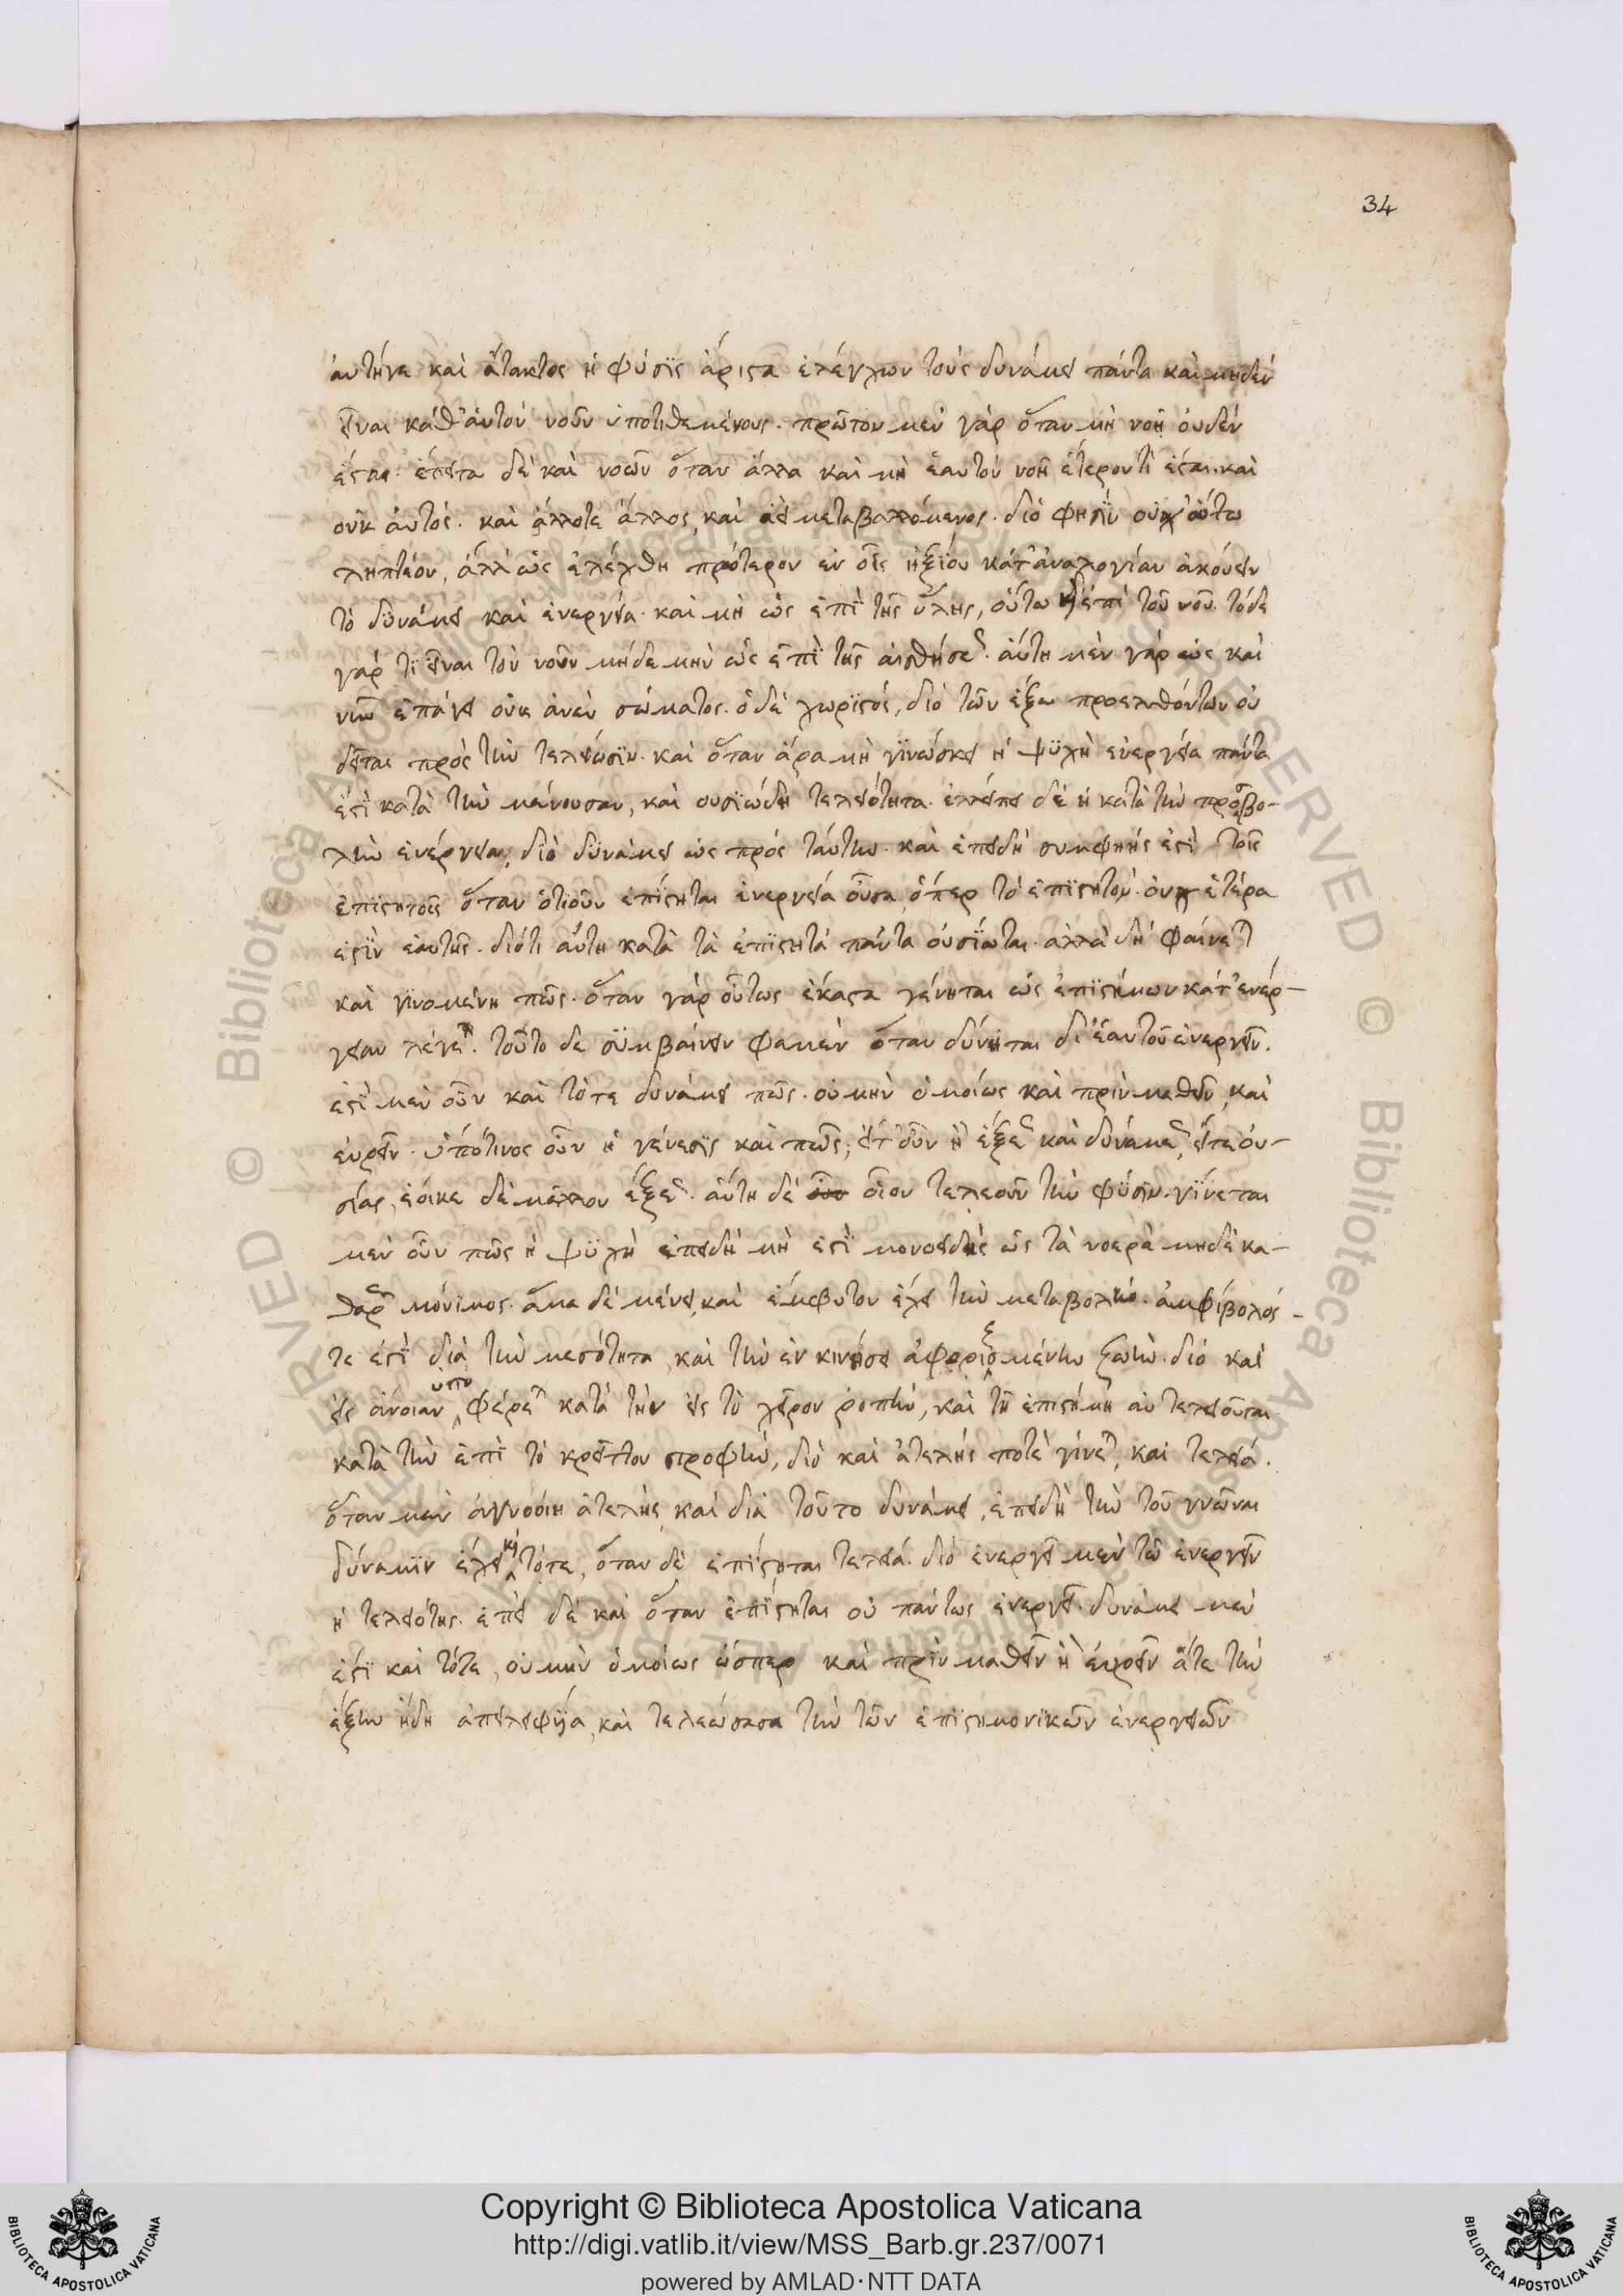 34
ἀυτήγε καὶ ἄτακτος ἡ φύσϊς ἄριστα ἐλέγχων τοὺς δυνάμει πάντα καὶ μηδὲν
εἶναι καθ' ἁυτὸν νοῦν ὑποτιθεμένους. πρῶτον μὲν γὰρ ὅταν μὴ νοῇ ὀυδὲν
ἔσται. ἔπειτα δὲ καὶ νοῶν ὅταν ἄλλα καὶ μὴ ἑαυτὸν νοῇ ἕτερον τὶ ἔσται καὶ
οὐκ ἀυτός. καὶ ἄλλοτε ἄλλος, καὶ ἀεὶ μεταβαλλόμενος. διό φησϊν οὐχ' ὅυτω
ληπτέον, ἀλλ' ὡς ἐλέχθη πρότερον ἐν οἷς ἠξίου κατ' ἀναλογίαν ἀκούειν
τὸ δυνάμει καὶ ἐνεργεία. καὶ μὴ ὡς ἐπὶ τῆς ὕλης, οὕτω καὶ ἐπὶ τοῦ νοῦ. τόδε
γάρ τϊ εἶναι τὸν νοῦν μήδε μὴν ὡς ἐπὶ τῆς αἰσθήσε. ἀύτη μὲν γὰρ ὡς καὶ
νῦν ἐπάγει οὐκ ἀνεὺ σώματος. ὁ δὲ χωρϊστός, διὸ τῶν ἔξω προελθόντων οὐ
δεῖται πρὸς τὴν τελείωσϊν. καὶ ὅταν ἄρα μὴ γϊνώσκει ἡ ψϋχὴ ἐνεργεία πάντα
ἐστὶ κατὰ τὴν μένουσαν, καὶ ουσϊώδη τελειότητα. ἐλλείπει δὲ ἡ κατὰ τὴν προβο-
λὴν ἐνέργεια, διὸ δϋνάμει ὡς πρὸς ταύτην. καὶ ἐπειδὴ συμφηής ἐστὶ τοῖς
ἐπϊστητοῖς ὅταν ὁτιοῦν ἐπίστηται ἐνεργεία οὖσα, ὅπερ τὸ ἐπϊστητὸν. ὀυχ ἑτέρα
ἐστὶν ἑαυτῆς. διότι αὕτη κατὰ τὰ ἐπϊστητὰ πάντα ὀυσίωται. ἀλλὰ δὴ φαίνετ
καὶ γϊνομένη πῶς. ὅταν γὰρ οὕτως ἕκαστα γένηται ὡς ἐπϊστήμων κατ' ἐνέρ-
γειαν λέγετ. τοῦτο δε συμβαίνειν φαμὲν ὅταν δύνηται δι' ἑαυτοῦ ἐνεργεῖν.
ἐστὶ μὲν οὖν καὶ τότε δυνάμει πῶς. οὐ μὴν ὁμοίως καὶ πρὶν μαθεῖν, καὶ
εὑρεῖν. ὑπότινος οὖν ἡ γένεσϊς καὶ πῶς; εἴτ' οὖν ἢ ἕξε καὶ δυνάμε, εἴτε ὀυ-
σίας, ἔοικε δὲ μᾶλλον ἕξε. ἀύτη δὲ οἷον τελεοῦν τὴν φύσϊν. γϊνεται
μὲν οὖν πῶς ἡ ψϋχὴ ἐπειδὴ μὴ ἐστϊ μονοειδὴς ὡς τὰ νοερὰ μηδὲ κα-
θαρ μόνϊμος. ἅμα δὲ μένει, καὶ ἔμφυτον ἔχει τὴν μεταβολὴν. ἀμφίβολός-
τε ἐστὶ διὰ τὴν μεσότητα, καὶ τὴν ἐν κινήσει ἀφοριζομένην ζωήν. διό καὶ
εἰς ἄνοιαν ὑπο φέρετ κατὰ τὴν εἰς τὸ χεῖρον ῥοπήν, καὶ τῇ ἐπιστήμῃ αὖ τελειοῦται
κατὰ τὴν ἐπὶ τὸ κρεῖττον στροφήν, διὸ καὶ ἀτελής ποτὲ γίνετ, καὶ τελεία.
ὅταν μὲν ἀγνοοίη ἀτελής, καὶ διὰ τοῦτο δυνάμει, ἐπειδὴ τὴν τοῦ γνῶναι
δύναμϊν ἔχει καὶ τότε, ὅταν δὲ ἐπίστηται τελεία. διὸ ἐνεργεῖ μὲν τῷ ἐνεργεῖν
ἡ τελειότης. ἐπεὶ δὲ καὶ ὅταν ἐπϊστηται οὐ πάντως ἐνεργεῖ. δυνάμει μὲν
ἐστϊ καὶ τότε, οὐ μὴν ὁμοίως ὥσπερ καὶ πρὶν μαθεῖν ἢ ἑυρεῖν ἅτε τὴν
ἕξιν ἤδη ἀπειληφϋῖα, καὶ τελεώσασα τὴν τῶν ἐπϊστημονϊκῶν ἐνεργειῶν
Copyright © Biblioteca Apostolica Vaticana
http://digi.vatlib.it/view/MSS_Barb.gr.237/0071
powered by AMLAD·NTT DATA
BIBLIOTECA APOSTOLICA VATICANA
BIBLIOTECA APOSTOLICA VATICANA